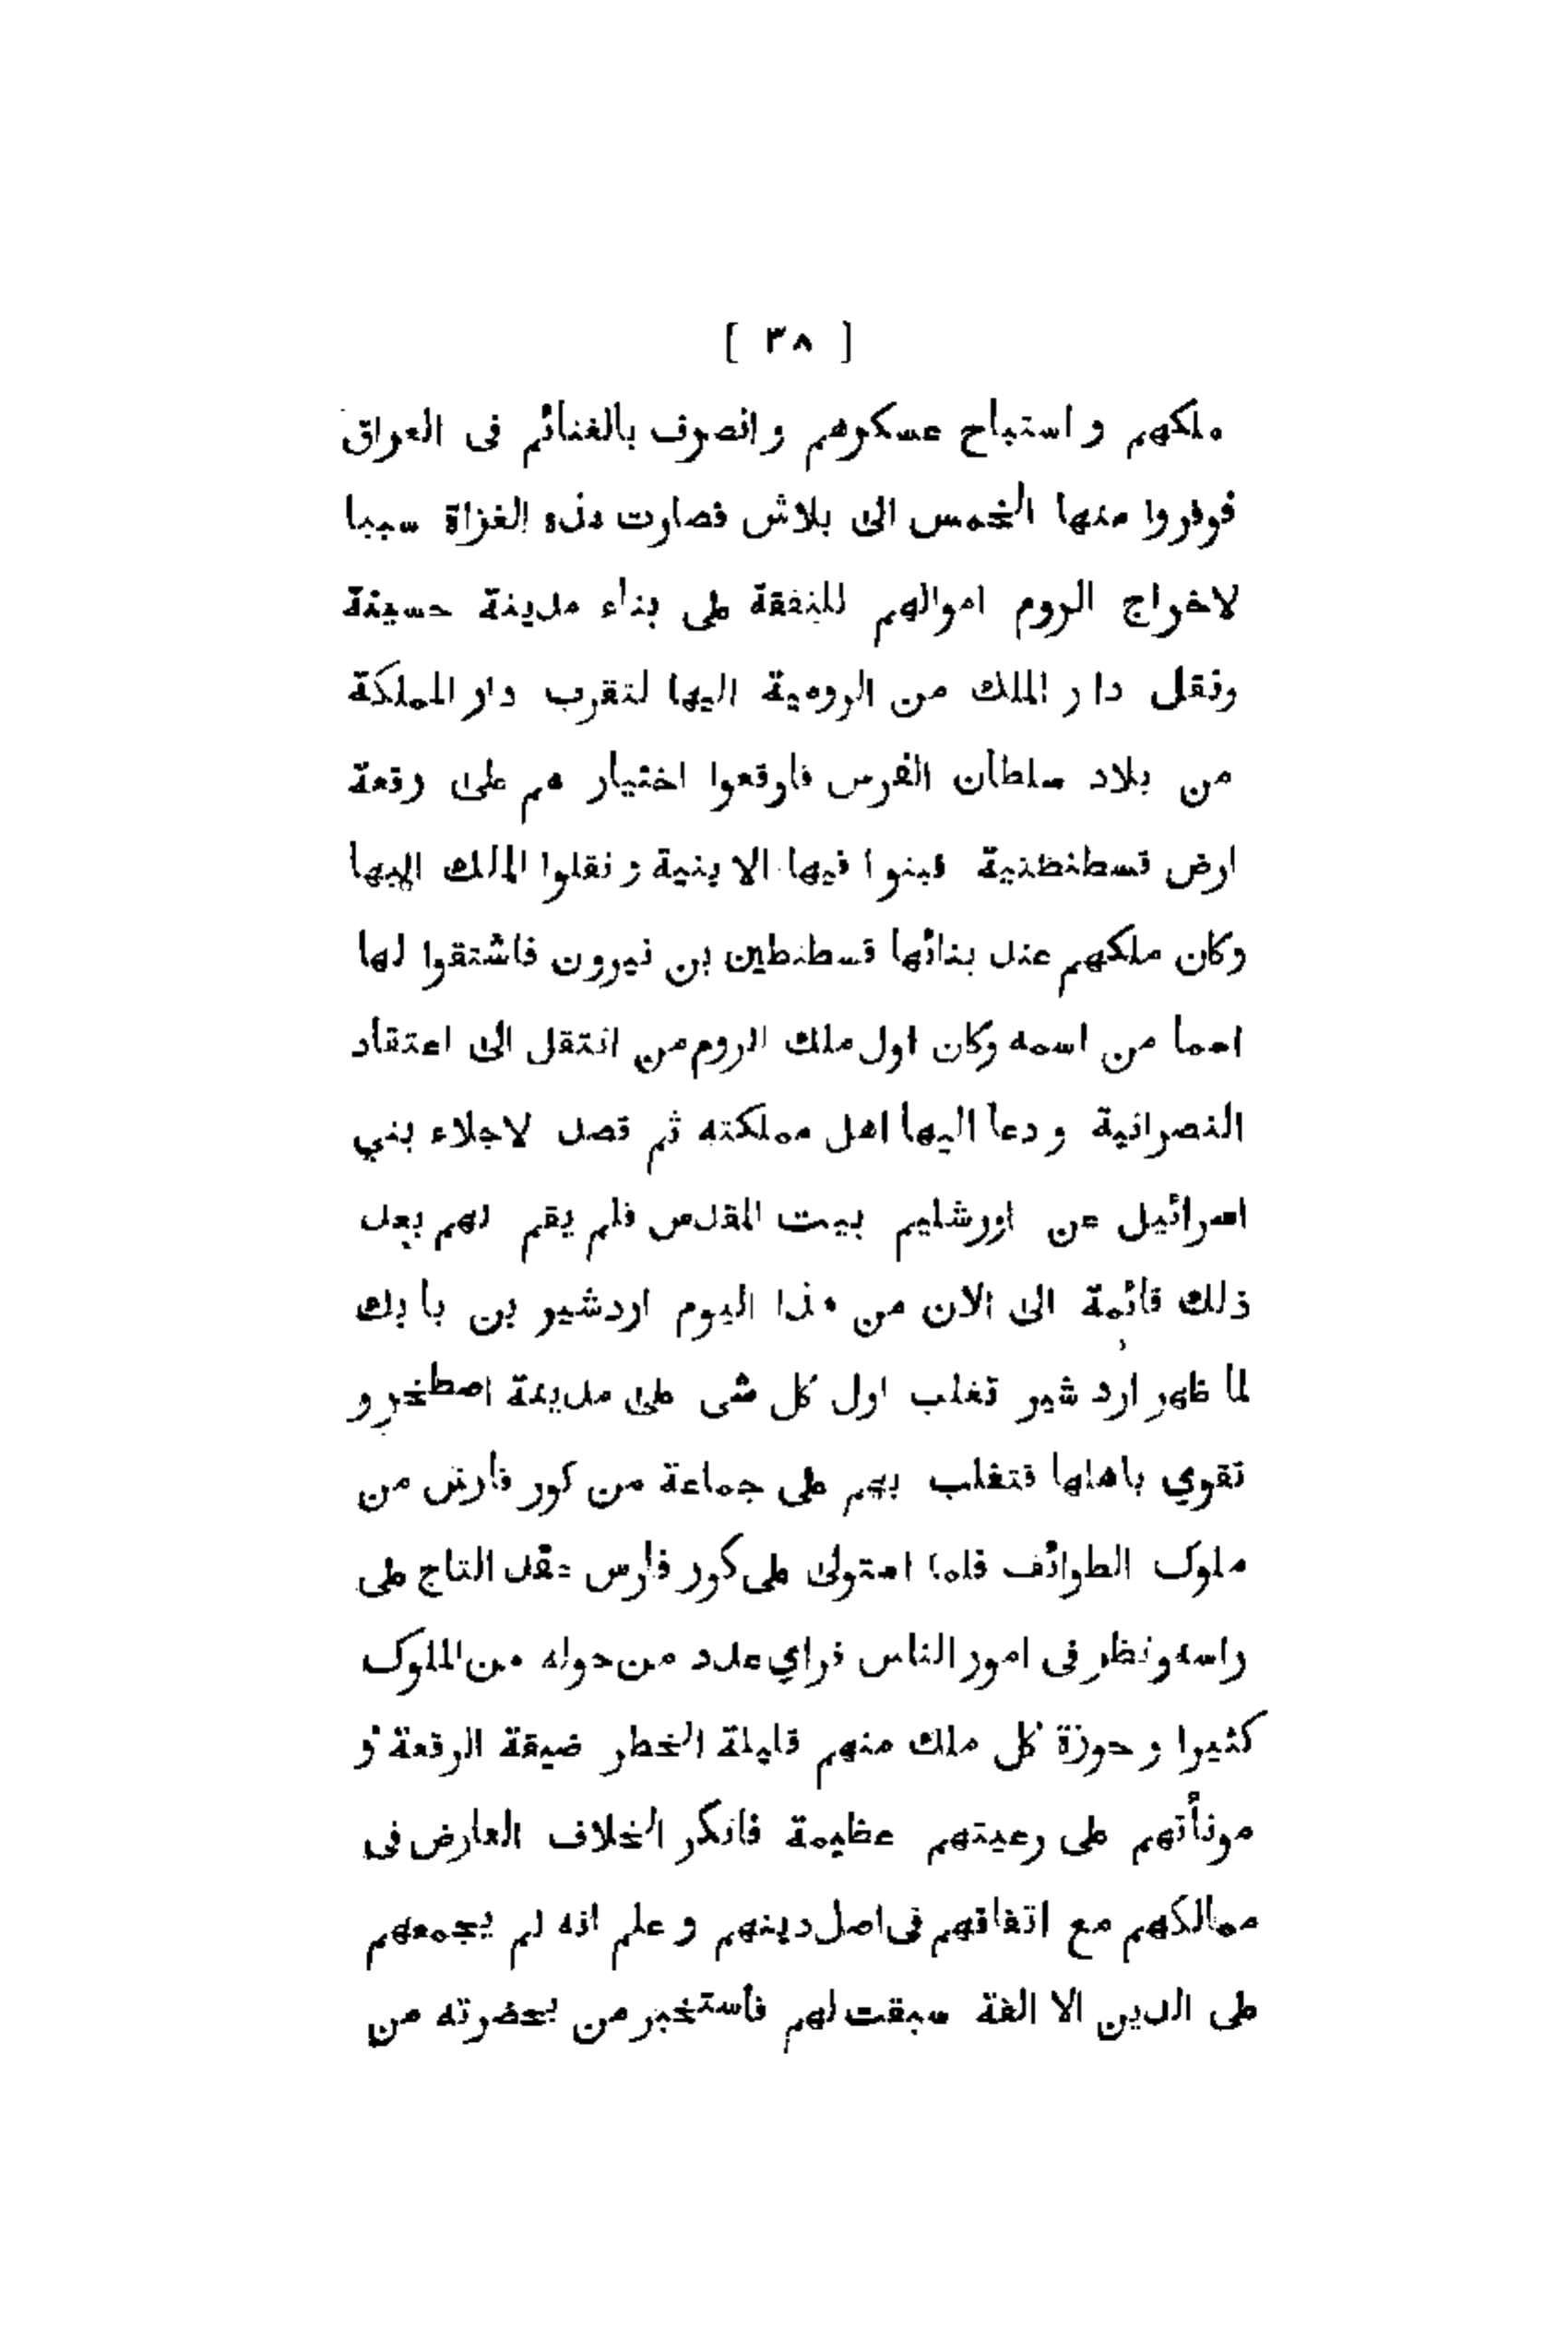 [ ٣٨ ]
ملكهم و استباح عسكرهم و انصرف بالغنائم فى العراق
فوفروا منها الخمس الى بلاش فصارت هذه الغزاة سببا
لاخراج الروم اموالهم للنفقة على بناء مدينة حسينة
ونقل دار الملك من الرومية اليها لتقرب دار المملكة
من بلاد سلطان الفرس فاوقعوا اختيار هم على رقعة
ارض قسطنطنية فبنوا فيها الابنية و نقلوا الملك اليها
وكان ملكهم عند بنائها قسطنطين بن نيرون فاشتقوا لها
اسما من اسمه وكان اول ملك الروم من انتقل الى اعتقاد
النصرانية و دعا اليها اهل مملكته ثم قصد لاجلاء بني
اسرائيل عن اورشليم بيت المقدس فلم يقم لهم بعد
ذلك قائمة الى الان من هذا اليوم اردشير بن بابك
لما ظهر ارد شير تغلب اول كل شى على مدينة اصطخر و
تقوي باهلها فتغلب بهم على جماعة من كور فارس من
ملوك الطوائف فلما استولى على كور فارس عقد التاج على
راسه و نظر فى امور الناس فراي عدد من حوله من الملوك
كثيرا و حوزة كل ملك منهم قليلة الخطر ضيقة الرقعة و
مونأتهم على رعيتهم عظيمة فانكر الخلاف العارض فى
ممالكهم مع اتفاقهم فى اصل دينهم و علم انه لم يجمعهم
على الدين الا الفة سبقت لهم فأستخبر من بحضرته من